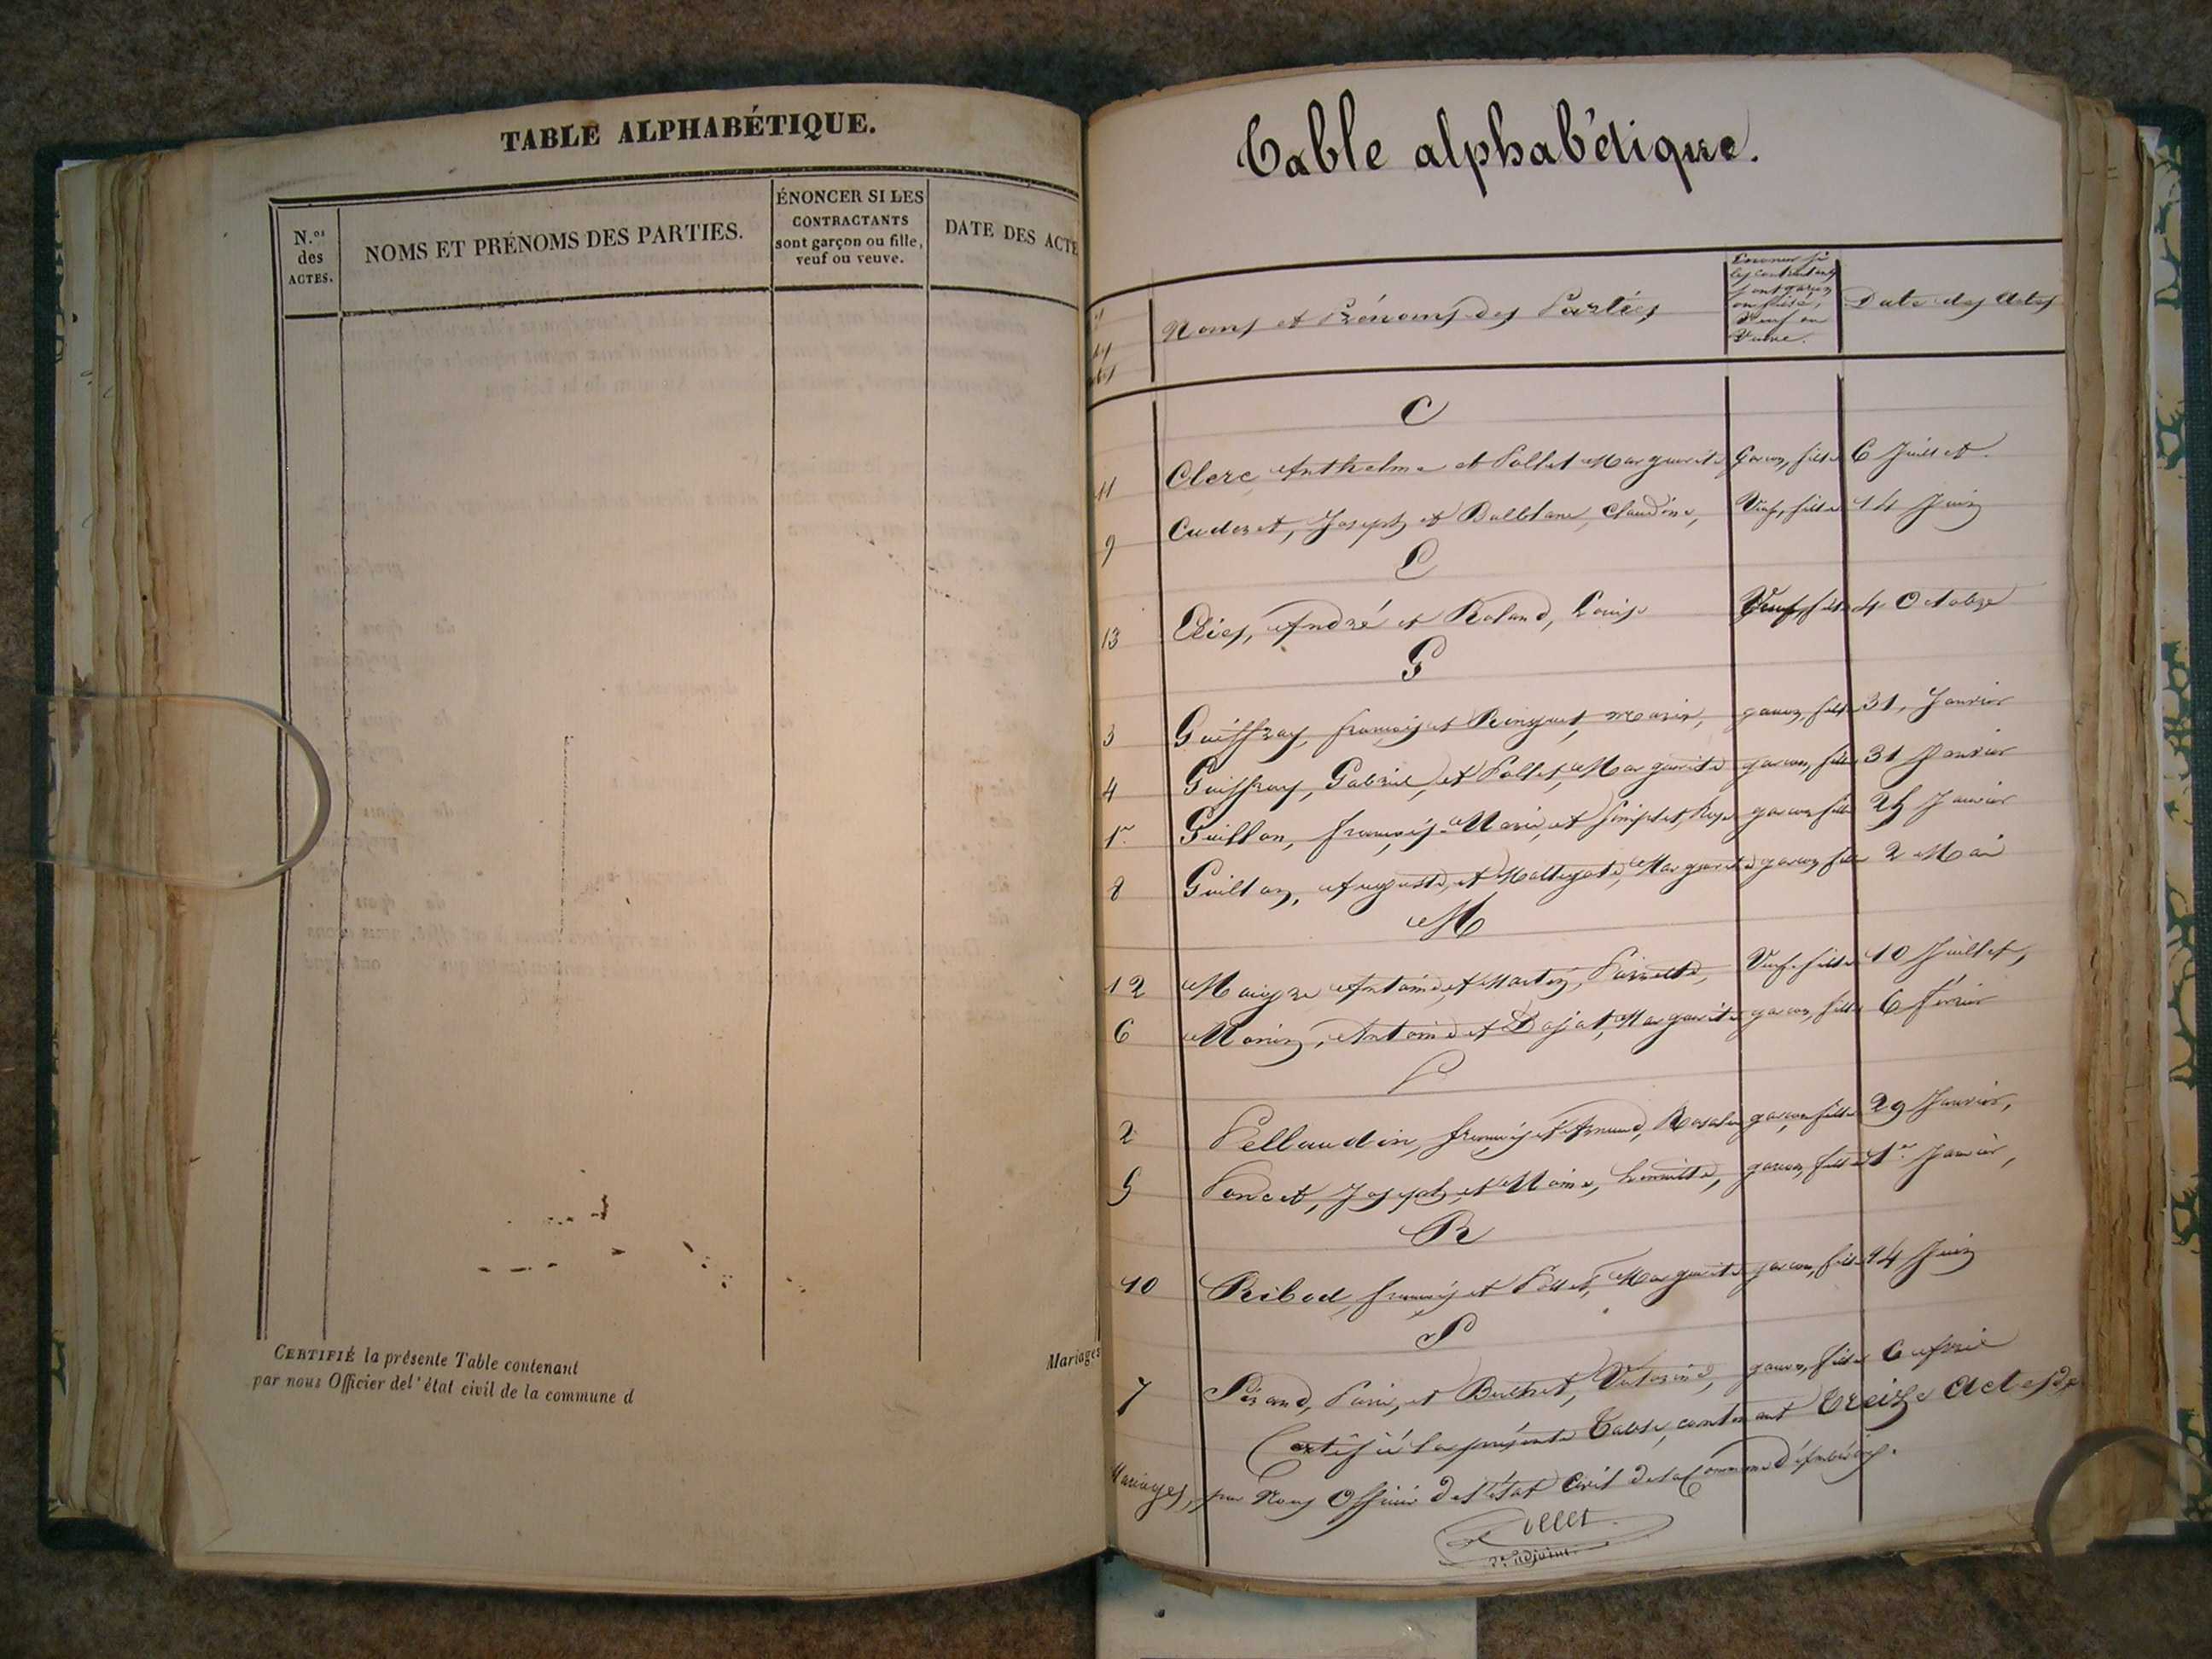 TABLE ALPHABÉTIQUE.
N.os des ACTES.
NOMS ET PRÉNOMS DES PARTIES.
ÉNONCER SI LES
CONTRACTANTS
sont garçon ou fille,
veuf ou veuve.
DATE DES ACTE
CERTIFIÉ la présente Table contenant
par nous Officier del'état civil de la commune d
Mariages
Table alphabétique.
Noms et Prénoms des Parties
Enoncer si
les contractants
sont garçon
ou fille,
Veuf ou
Veuve.
Date des Actes
C
11 Clerc Anthelme et Pollet Marguerite Garçon, fille 6 Juillet.
9 Cuderet, Joseph et Ballblane, Claudine, Veuf, fille 14 Juin
E
13 André et Roland, Louise Veuf, fille 4 Octobre
G
3 Guiffray, françois et Marie, garçon, fille 31, Janvier
4 Guiffray, Gabriel, et Pollet, Marguerite garçon, fille 31 Janvier
1er Guillon, françois-Marie, et garçon, fille Janvier
8 Guillon, Auguste, et Marguerite garçon, fille 2 Mai
M
12 Maigre Antoine, et Martin, Pierrette, Veuf. fille 10 Juillet,
6 Morin, Antoine et Dajat, Marguerite garçon, fille 6 février
P
2 Pellaudin, françois et garçon fille 29 Janvier,
5 Poncet, Joseph, et garçon, fille 1er Janvier,
R
10 Ribod, françois et Pollet, Marguerite garçon, fille 14 Juin
S
7 et Buthet, garçon, fille 6 Avril
Certifié la présente Table, contenant Treize Actes de
Mariages, par Nous Officier de l'état Civil de la Commune
Pollet
adjoint